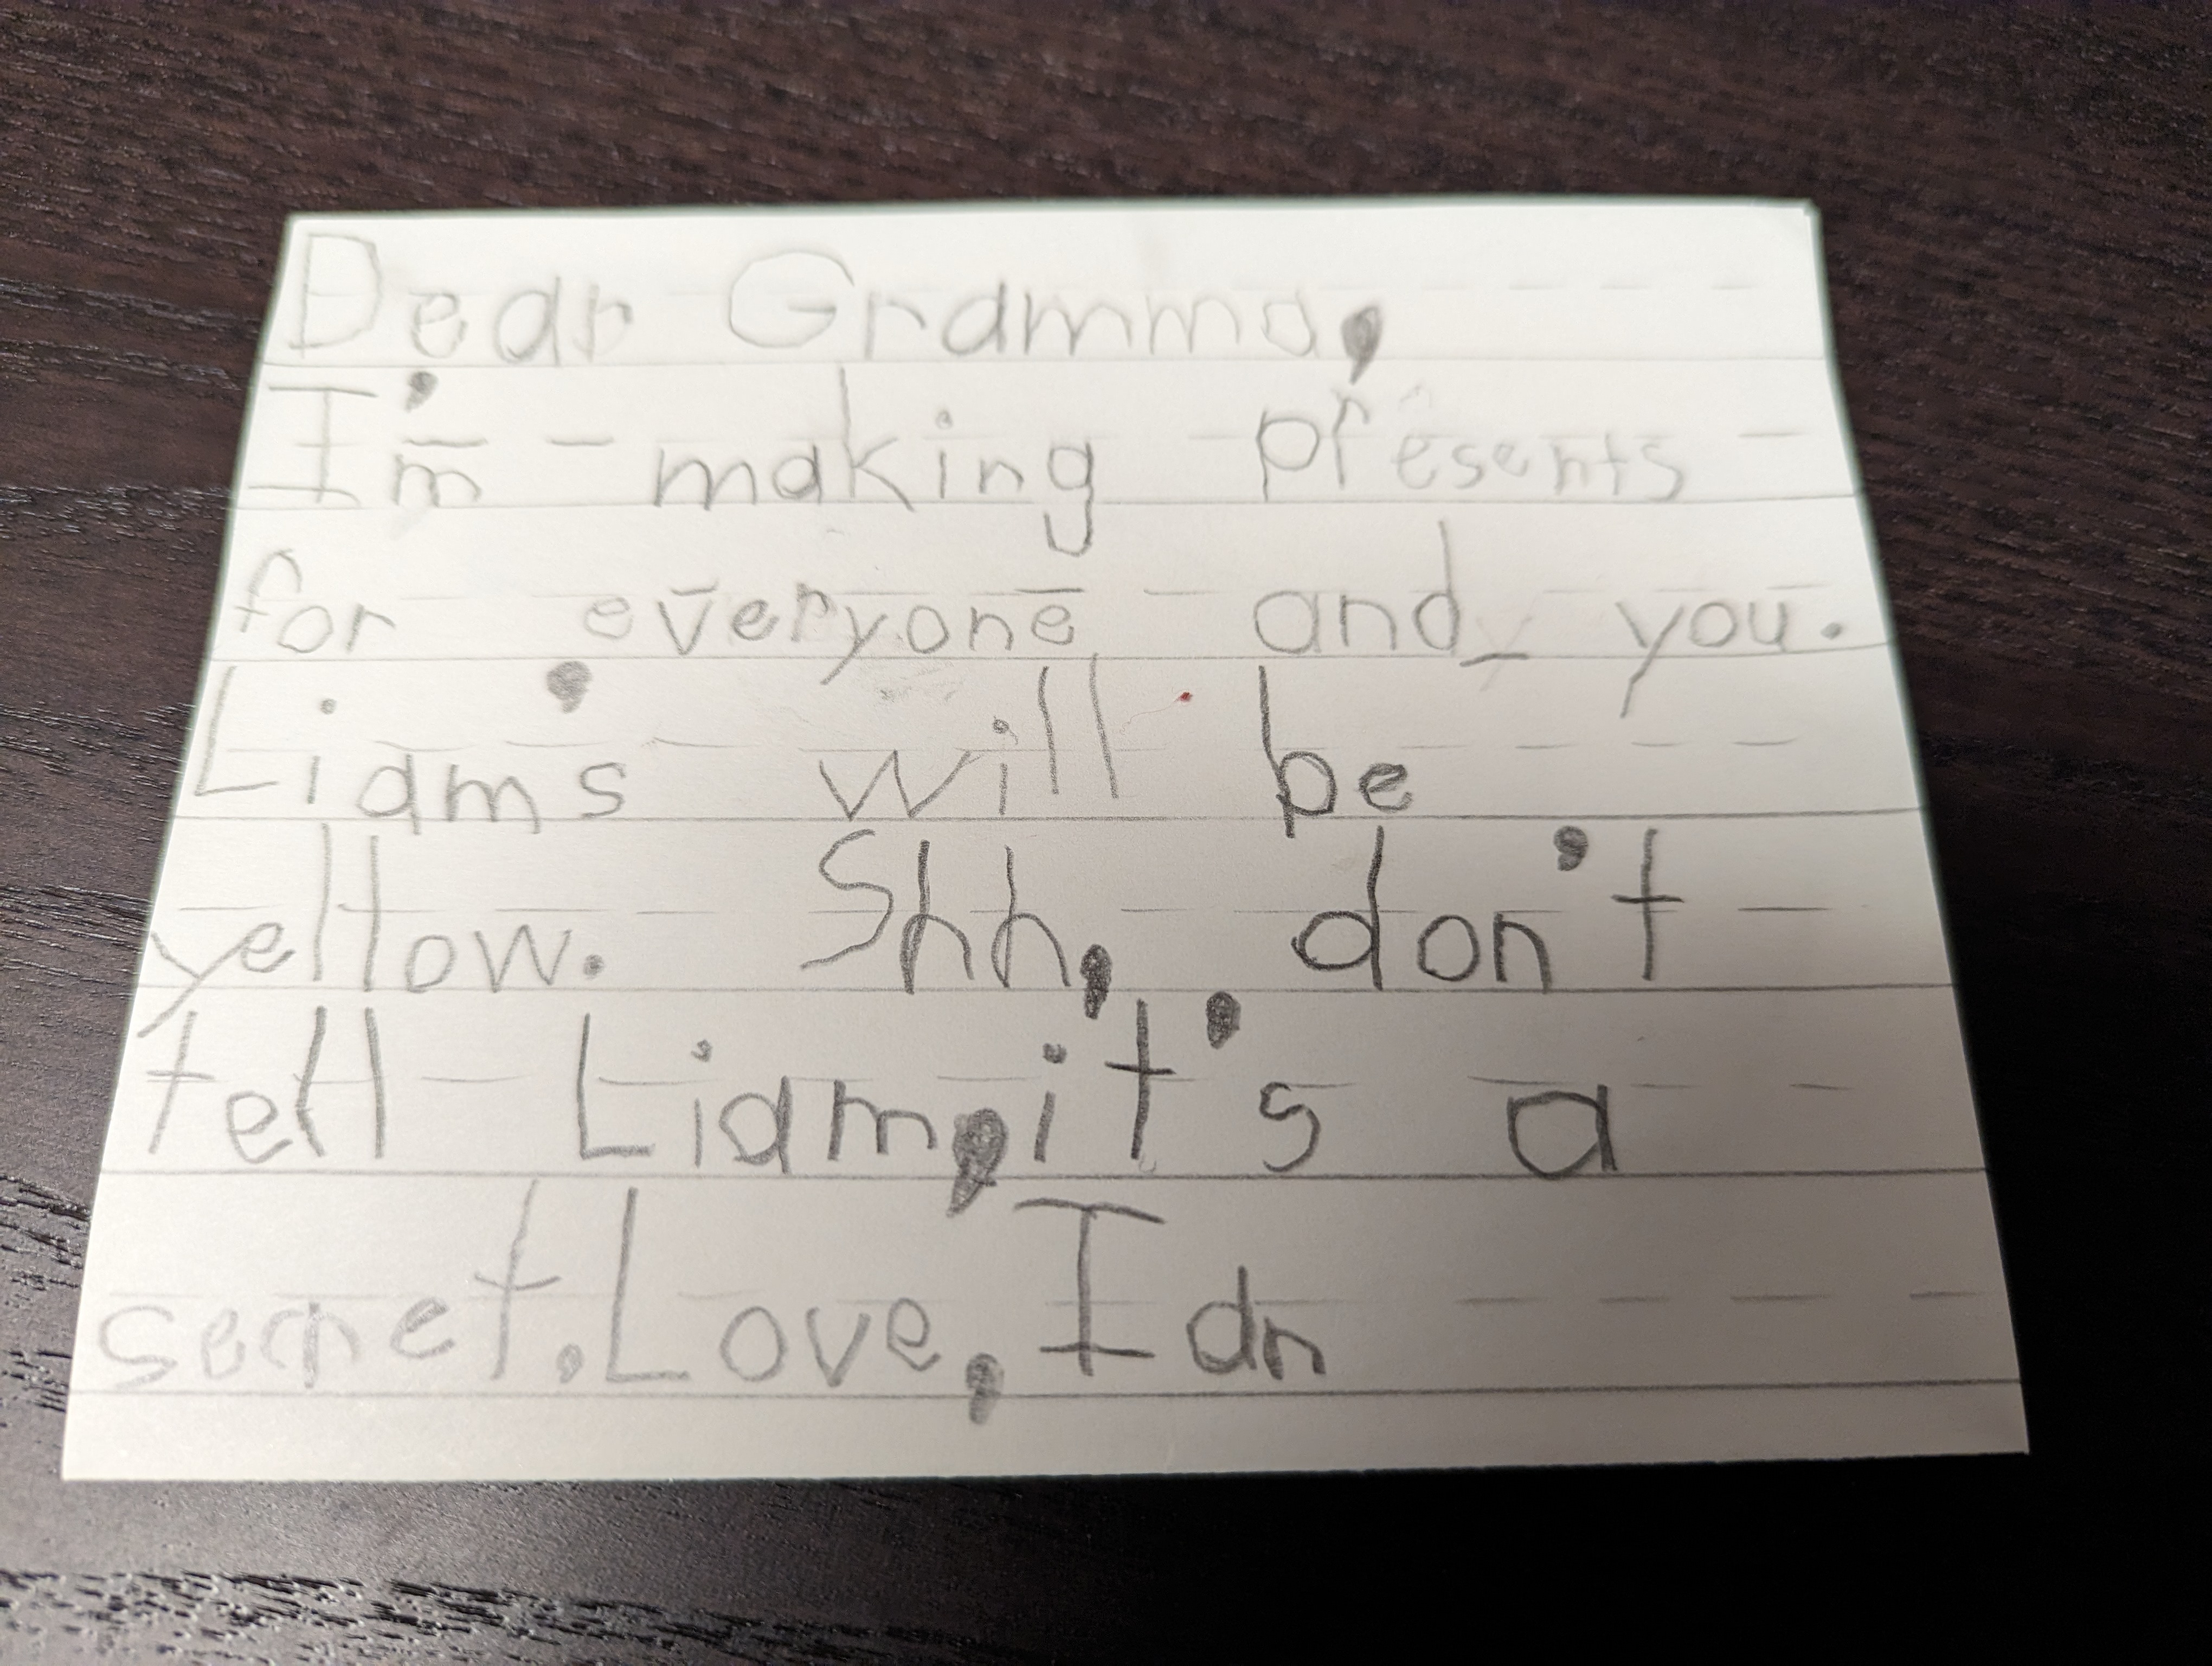 Dear Gramma,
I'm making presents
for everyone and you.
Liam's will be
yellow. Shh, don't
tell Liam, it's a
secret. Love, Ian